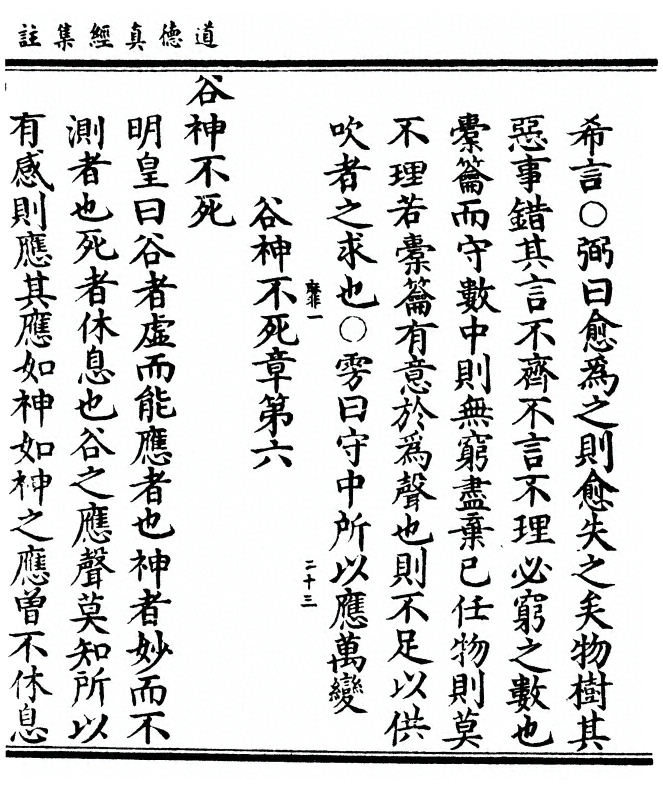 道德真經集註
希言○弼曰愈爲之則愈失之矣物樹其
惡事錯其言不齊不言不理必窮之數也
橐籥而守數中則無窮盡棄已任物則莫
不理若橐籥有意於爲聲也則不足以供
吹者之求也○雱曰守中所以應萬變
靡非一
二十三
谷神不死章第六
谷神不死
明皇曰谷者虛而能應者也神者妙而不
測者也死者休息也谷之應聲莫知所以
有感則應其應如神如神之應曾不休息